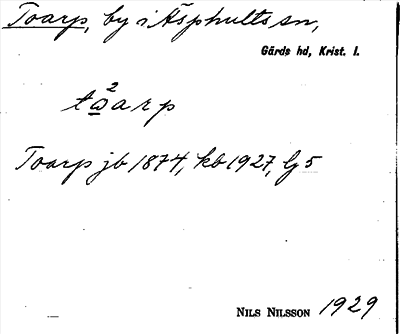 Toarp, by i Äsphults sn,
Gärds hd, Krist. l.
t a² a r p
Toarp jb 1874, kb 1927, lg 5
NILS NILSSON 1929